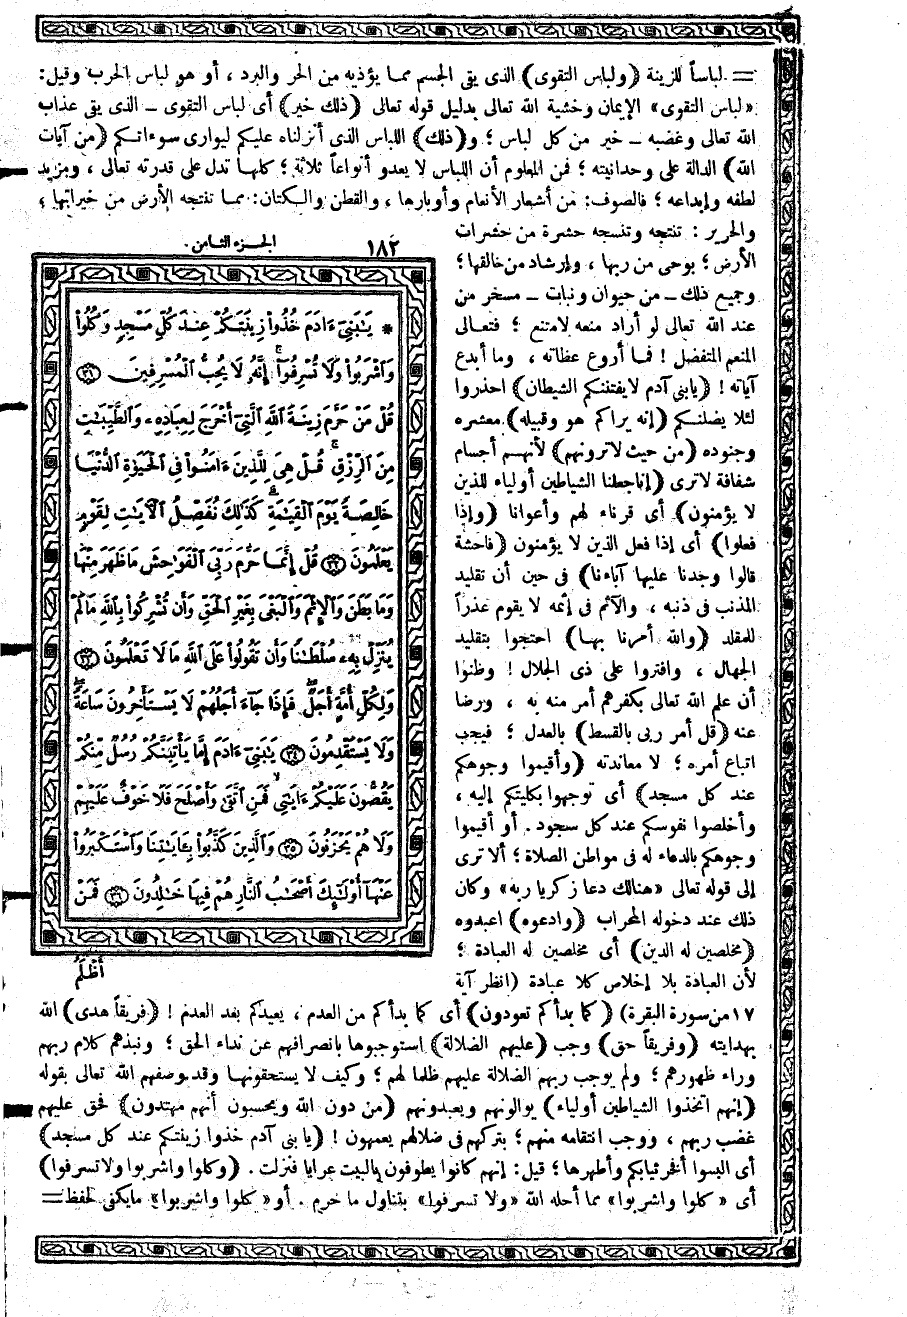 = لباساً للزينة (ولباس التقوى) الذى يقى الجسم مما يؤذيه من الحر والبرد ، أو هو لباس الحرب وقيل:
«لباس التقوى» الإيمان وخشية الله تعالى بدليل قوله تعالى (ذلك خير) أى لباس التقوى ــ الذى يقى عذاب
الله تعالى وغضبه ــ خير من كل لباس ؛ و(ذلك) اللباس الذى أنزلناه عليكم ليوارى سوءاتكم (من آيات
الله) الدالة على وحدانيته ؛ فمن المعلوم أن اللباس لا يعدو أنواعاً ثلاثة ؛ كلها تدل على قدرته تعالى ، ومزيد
لطفه وإبداعه ؛ فالصوف: من أشعار الأنعام وأوبارها ، والقطن والكتان: مما تنتجه الأرض من خيراتها ،
والحرير : تنتجه وتنسجه حشرة من حشرات
الأرض ؛ بوحى من ربها ، وإرشاد من خالقها ؛
وجميع ذلك ــ من حيوان ونبات ــ مسخر من
عند الله تعالى لو أراد منعه لامتنع ؛ فتعالى
المنعم المتفضل ! فما أروع عظاته ، وما أبدع
آياته ! (يابنى آدم لايفتننكم الشيطان) احذروا
لئلا يضلنكم (إنه يراكم هو وقبيله) معشره
وجنوده (من حيث لاترونهم) لأنهم أجسام
شفافة لاترى (إناجعلنا الشياطين أولياء للذين
لا يؤمنون) أى قرناء لهم وأعوانا (وإذا
فعلوا) أى إذا فعل الذين لا يؤمنون (فاحشة
قالوا وجدنا عليها آباءنا) فى حين أن تقليد
المذنب فى ذنبه ، والآثم فى إثمه لا يقوم عذراً
للمقلد (والله أمرنا بها) احتجوا بتقليد
الجهال ، وافتروا على ذى الجلال ! وظنوا
أن علم الله تعالى بكفرهم أمر منه به ، ورضا
عنه (قل أمر ربى بالقسط) بالعدل ؛ فيجب
اتباع أمره ؛ لا معاندته (وأقيموا وجوهكم
عند كل مسجد) أى توجهوا بكليتكم إليه ،
وأخلصوا نفوسكم عند كل سجود . أو أقيموا
وجوهكم بالدعاء له فى مواطن الصلاة ؛ ألا ترى
إلى قوله تعالى «هنالك دعا زكريا ربه» وكان
ذلك عند دخوله المحراب (وادعوه) اعبدوه
(مخلصين له الدين) أى مخلصين له العبادة ؛
لأن العبادة بلا إخلاص كلا عبادة (انظر آية
١٧ من سورة البقرة) (كما بدأكم تعودون) أى كما بدأكم من العدم ، يعيدكم بعد العدم ! (فريقاً هدى) الله
بهدايته (وفريقاً حق) وجب (عليهم الضلالة) استوجبوها بانصرافهم عن نداء الحق ؛ ونبذهم كلام ربهم
وراء ظهورهم ؛ ولم يوجب ربهم الضلالة عليهم ظلما لهم ؛ وكيف لا يستحقونها وقد وصفهم الله تعالى بقوله
(إنهم اتخذوا الشياطين أولياء) يوالونهم ويعبدونهم (من دون الله ويحسبون أنهم مهتدون) فحق عليهم
غضب ربهم ، ووجب انتقامه منهم ؛ بتركهم فى ضلالهم يعمهون ! (يا بنى آدم خذوا زينتكم عند كل مسجد)
أى البسوا أفخر ثيابكم وأطهرها ؛ قيل : إنهم كانوا يطوفون بالبيت عرايا فنزلت . (وكلوا واشربوا ولا تسرفوا)
أى « كلوا واشربوا» مما أحله الله «ولا تسرفوا» بتناول ما حرم . أو «كلوا واشربوا» مايكفى لحفظ =
١٨٢ الجزء الثامن
* يَٰبَنِىٓ ءَادَمَ خُذُوا۟ زِينَتَكُمْ عِندَ كُلِّ مَسْجِدٍ وَكُلُوا۟
وَٱشْرَبُوا۟ وَلَا تُسْرِفُوٓا۟ إِنَّهُۥ لَا يُحِبُّ ٱلْمُسْرِفِينَ ٣١
قُلْ مَنْ حَرَّمَ زِينَةَ ٱللَّهِ ٱلَّتِىٓ أَخْرَجَ لِعِبَادِهِۦ وَٱلطَّيِّبَٰتِ
مِنَ ٱلرِّزْقِ قُلْ هِىَ لِلَّذِينَ ءَامَنُوا۟ فِى ٱلْحَيَوٰةِ ٱلدُّنْيَا
خَالِصَةً يَوْمَ ٱلْقِيَٰمَةِ كَذَٰلِكَ نُفَصِّلُ ٱلْءَايَٰتِ لِقَوْمٍ
يَعْلَمُونَ ٣٢ قُلْ إِنَّمَا حَرَّمَ رَبِّىَ ٱلْفَوَٰحِشَ مَا ظَهَرَ مِنْهَا
وَمَا بَطَنَ وَٱلْإِثْمَ وَٱلْبَغْىَ بِغَيْرِ ٱلْحَقِّ وَأَن تُشْرِكُوا۟ بِٱللَّهِ مَا لَمْ
يُنَزِّلْ بِهِۦ سُلْطَٰنًا وَأَن تَقُولُوا۟ عَلَى ٱللَّهِ مَا لَا تَعْلَمُونَ ٣٣
وَلِكُلِّ أُمَّةٍ أَجَلٌ فَإِذَا جَآءَ أَجَلُهُمْ لَا يَسْتَأْخِرُونَ سَاعَةً
وَلَا يَسْتَقْدِمُونَ ٣٤ يَٰبَنِىٓ ءَادَمَ إِمَّا يَأْتِيَنَّكُمْ رُسُلٌ مِّنكُمْ
يَقُصُّونَ عَلَيْكُمْ ءَايَٰتِى فَمَنِ ٱتَّقَىٰ وَأَصْلَحَ فَلَا خَوْفٌ عَلَيْهِمْ
وَلَا هُمْ يَحْزَنُونَ ٣٥ وَٱلَّذِينَ كَذَّبُوا۟ بِـَٔايَٰتِنَا وَٱسْتَكْبَرُوا۟
عَنْهَآ أُو۟لَٰٓئِكَ أَصْحَٰبُ ٱلنَّارِ هُمْ فِيهَا خَٰلِدُونَ ٣٦ فَمَنْ
أَظْلَمُ